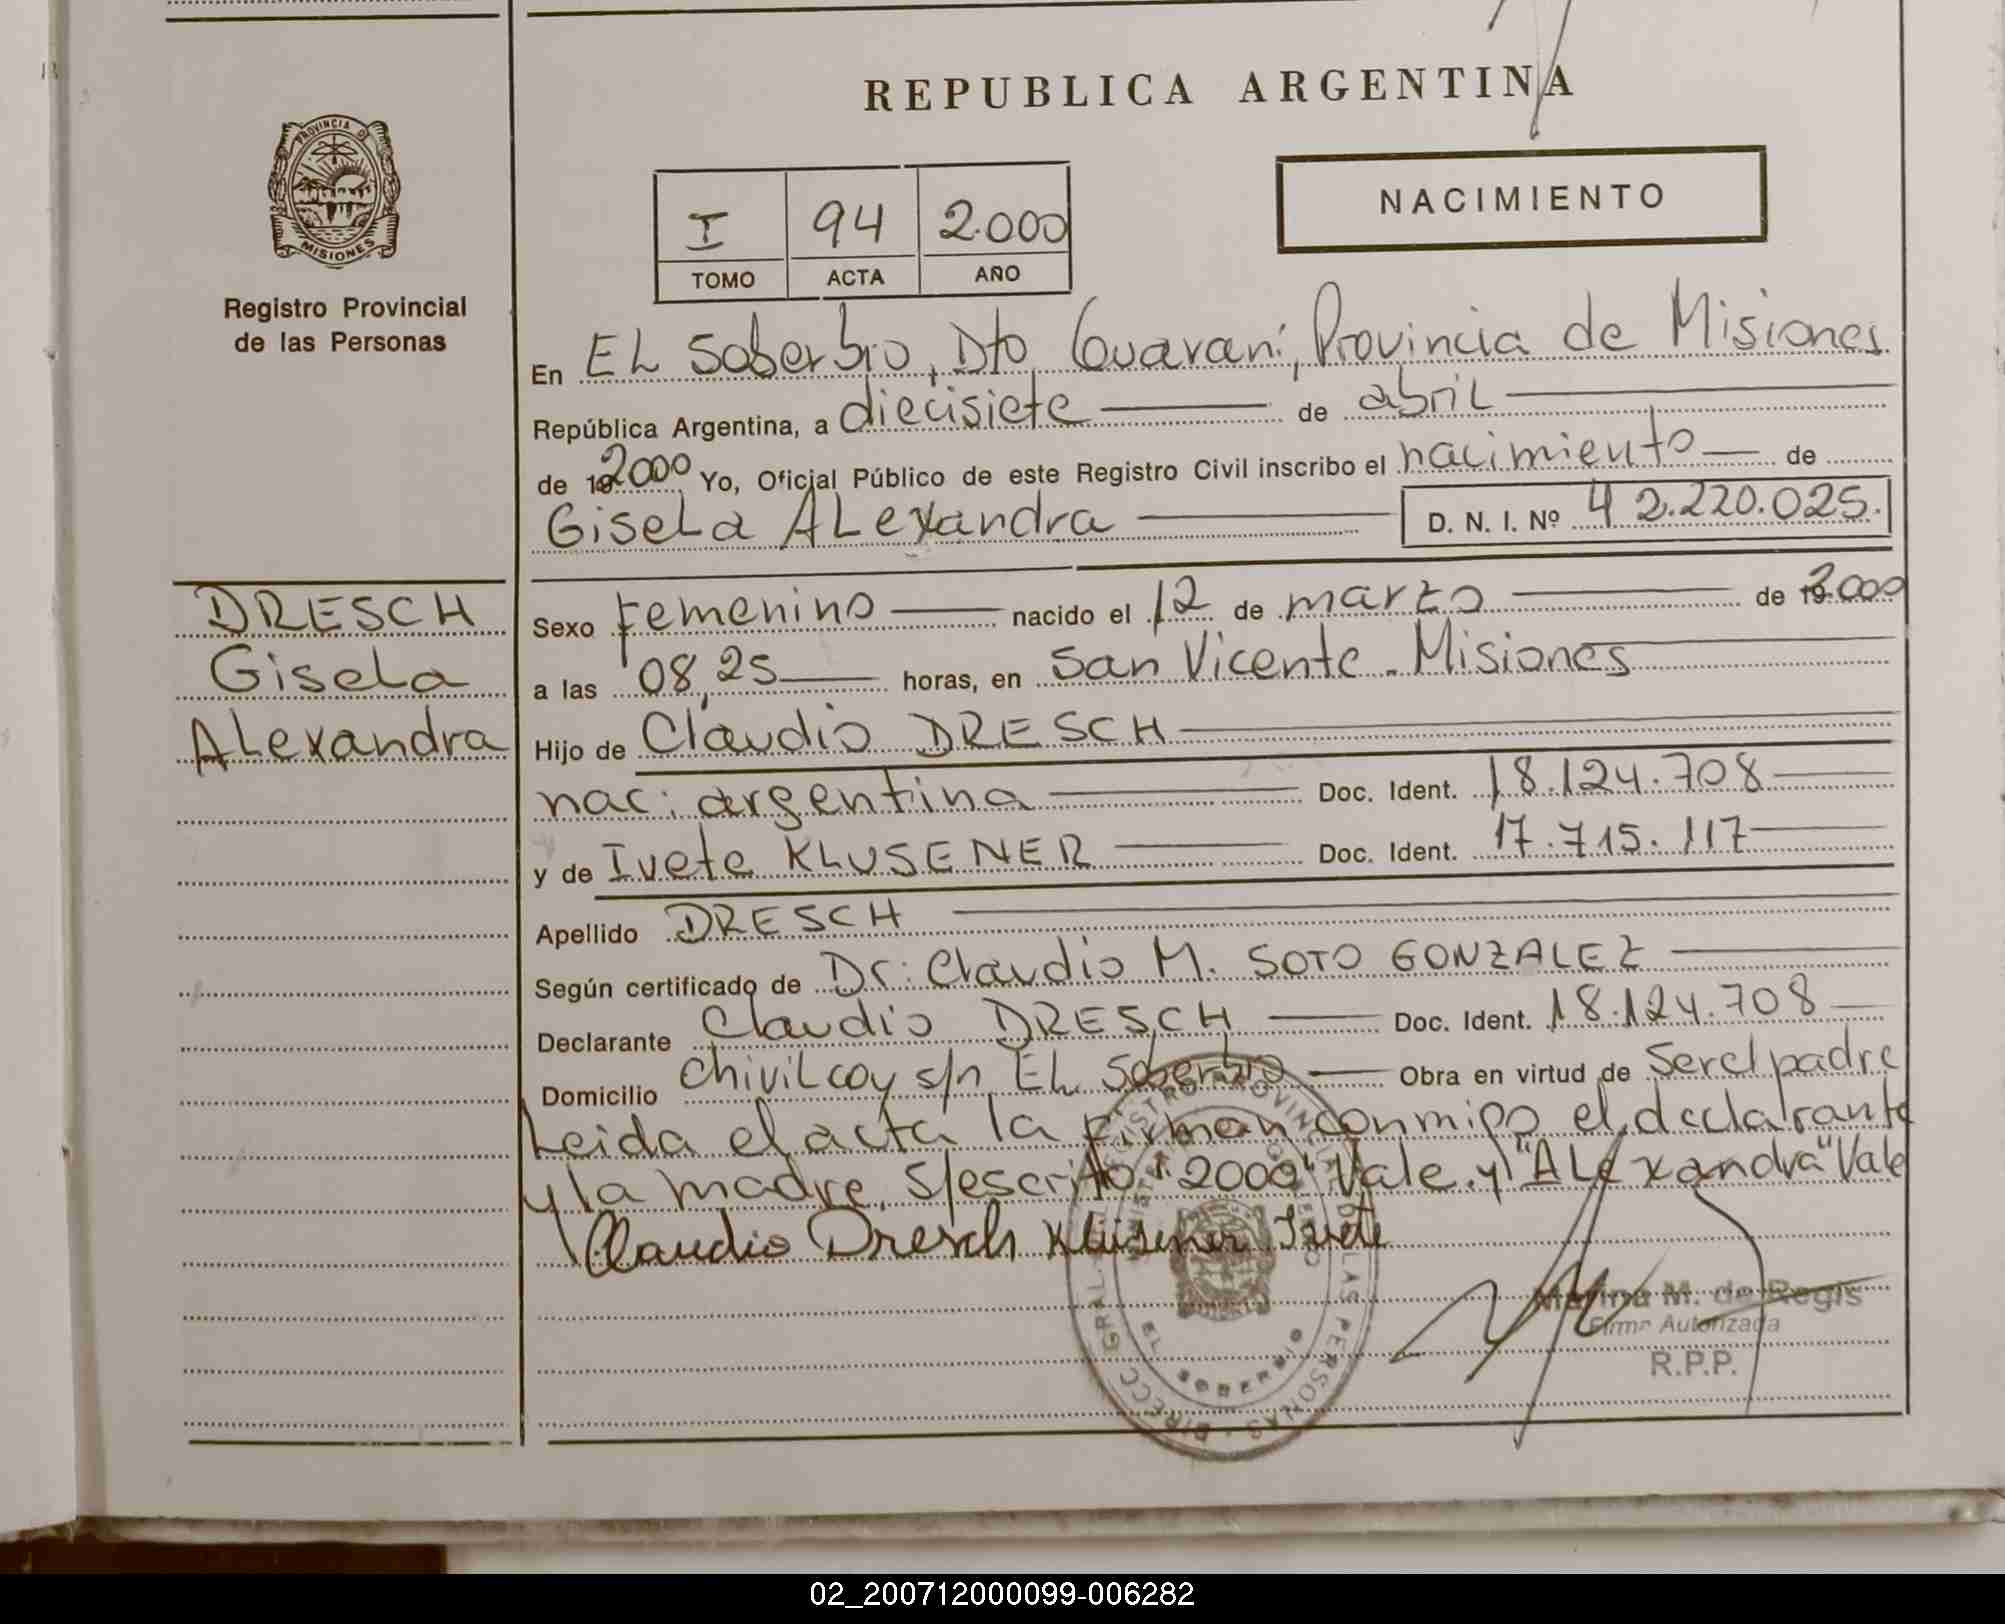 REPUBLICA ARGENTINA
PROVINCIA DE
MISIONES
Registro Provincial
de las Personas
I 94 2.000
TOMO ACTA AÑO
NACIMIENTO
En EL Soberbio, Dto Guaraní, Provincia de Misiones
República Argentina, a diecisiete de abril
de 2000 Yo, Oficial Público de este Registro Civil inscribo el nacimiento de
Gisela Alexandra D. N. I. Nº 42.220.025.
DRESCH
Gisela
Alexandra
Sexo Femenino nacido el 12 de marzo de 2000
a las 08,25 horas, en San Vicente - Misiones
Hijo de Claudio DRESCH
nac: argentina Doc. Ident. 18.124.708
y de Ivete KLUSENER Doc. Ident. 17.715.117
Apellido DRESCH
Según certificado de Dr: Claudio M. SOTO GONZALEZ
Declarante Claudio DRESCH Doc. Ident. 18.124.708
Domicilio Chivilcoy s/n EL Soberbio Obra en virtud de ser el padre
Leida el acta la firman conmigo el declarante
y la madre, s/escrito "2000" Vale. y "Alexandra" Vale
Claudio Dresch Klüsener Ivete
Marina M. de Regis
Firma Autorizada
R.P.P.
DIRECC GRAL. REGISTRO PROVINCIAL DE LAS PERSONAS
EL SOBERBIO
02_200712000099-006282